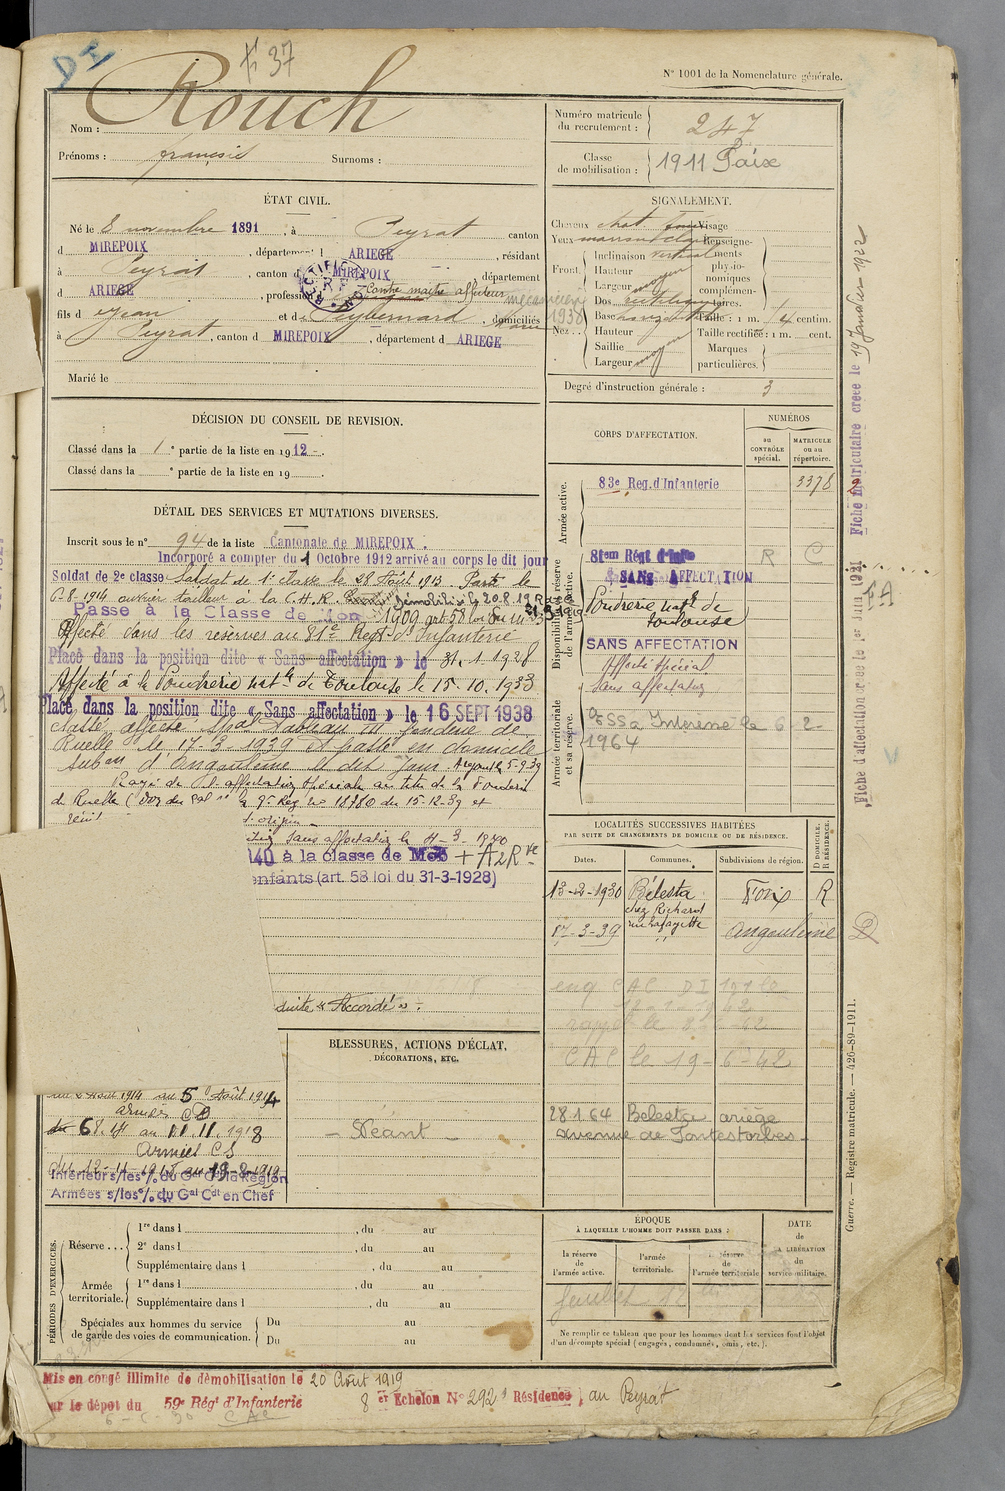 D I
37
N° 1001 de la Nomenclature générale.
Rouch
Nom :
Prénoms : françois Surnoms :
ÉTAT CIVIL.
Né le 8 novembre 1891, à Peyrat canton
d MIREPOIX, département d ARIEGE, résidant
à Peyrat, canton d MIREPOIX, département
d ARIEGE, profession Contre maitre affuteur mecanicien
RECTIFICATION R.F.
1938
fils d Jean et de Peybernard Marie, domiciliés
à Peyrat, canton d MIREPOIX, département d ARIEGE
Marié le
DÉCISION DU CONSEIL DE REVISION.
Classé dans la 1e partie de la liste en 1912.
Classé dans la e partie de la liste en 19
DÉTAIL DES SERVICES ET MUTATIONS DIVERSES.
Inscrit sous le n° 94 de la liste Cantonale de MIREPOIX.
Incorporé a compter du 1 Octobre 1912 arrivé au corps le dit jour
Soldat de 2e classe Soldat de 1e classe le 28 Août 1913. Parti le
6-8-1914 ouvrier tailleur à la C.H.R. démobilisé le 20.8.19
Passe à la Classe de Mon 1909 art 58 loi du
Affecté dans les réserves au 81e Regt d'Infanterie
Placé dans la position dite « Sans affectation » le 31.1.1928
Affecté à la Poudrerie natle de Toulouse le 15-10.1933
Placé dans la position dite « Sans affectation » le 16 SEPT 1938
classé affecté spal fonderie de
Ruelle le 17-3-1939 et passé en domicile
Subon d'Angoulême le dit jour. 5-9-39
Rayé de l'affectation spéciale au titre de la Fonderie
de Ruelle 9e Reg no 18780 du 15-12-39 et
origin
Sans affectation le 11-3-1940
1940 à la classe de Mob + A2Rve
enfants (art. 58 loi du 31-3-1928)
duite « Accordé ».
au 5 Août 1914
armée CD
du 6 8. 14 au 11.11.1918
Armées CS
Intérieur s/les % du Gal Ct la Région
Armées s/les % du Gal Cdt en Chef
BLESSURES, ACTIONS D'ÉCLAT,
DÉCORATIONS, ETC.
- Néant -
PÉRIODES D'EXERCICES.
Réserve...
1re dans l , du au
2e dans l , du au
Supplémentaire dans l , du au
Armée territoriale.
1re dans l , du au
Supplémentaire dans l , du au
Spéciales aux hommes du service de garde des voies de communication.
Du au
Du au
Mis en congé illimité de démobilisation le 20 Août 1919
par le dépot du 59e Régt d'Infanterie 8 er Echelon N° 292 Résidence au Peyrat
Numéro matricule du recrutement : 247
Classe de mobilisation : 1911 Paix
SIGNALEMENT.
Cheveux chat
Yeux marron clair
Front.
Inclinaison vertical
Hauteur moyen
Largeur
Nez.
Dos rectiligne
Base horizontal
Hauteur
Saillie moyen
Largeur
Visage
Renseignements physionomiques complémentaires.
Taille : 1 m. centim.
Taille rectifiée : 1 m. cent.
Marques particulières.
Degré d'instruction générale : 3
CORPS D'AFFECTATION.
NUMÉROS
au CONTRÔLE spécial.
MATRICULE ou au répertoire.
Armée active.
83e Reg. d'Infanterie 3378
Disponibilité et réserve de l'armée active.
81em Régt d'Infie R C
SANS AFFECTATION
Poudrerie natle de
toulouse
SANS AFFECTATION
Affecté spécial
Armée territoriale et sa réserve.
Sans affectation
6-2-
1964
LOCALITÉS SUCCESSIVES HABITÉES
PAR SUITE DE CHANGEMENTS DE DOMICILE OU DE RÉSIDENCE.
Dates. Communes. Subdivisions de région. D DOMICILE. R RÉSIDENCE.
13-2-1930 Bélesta Foix R
chez Richard
17-3-39 rue Lafayette Angoulême D
eng CAC DI
CAC le 19-6-42
28.1.64 Belesta ariège
avenue de Fontestorbes
ÉPOQUE
À LAQUELLE L'HOMME DOIT PASSER DANS :
la réserve de l'armée active.
l'armée territoriale.
la réserve de l'armée territoriale
DATE de LA LIBÉRATION du service militaire.
Ne remplir ce tableau que pour les hommes dont les services font l'objet d'un décompte spécial (engagés, condamnés, omis, etc.).
Fiche matriculaire créée le 19 Janvier 1922
Fiche d'affectation créée le 1er Juin 1921
FA
Guerre. — Registre matricule. — 426-89-1911.